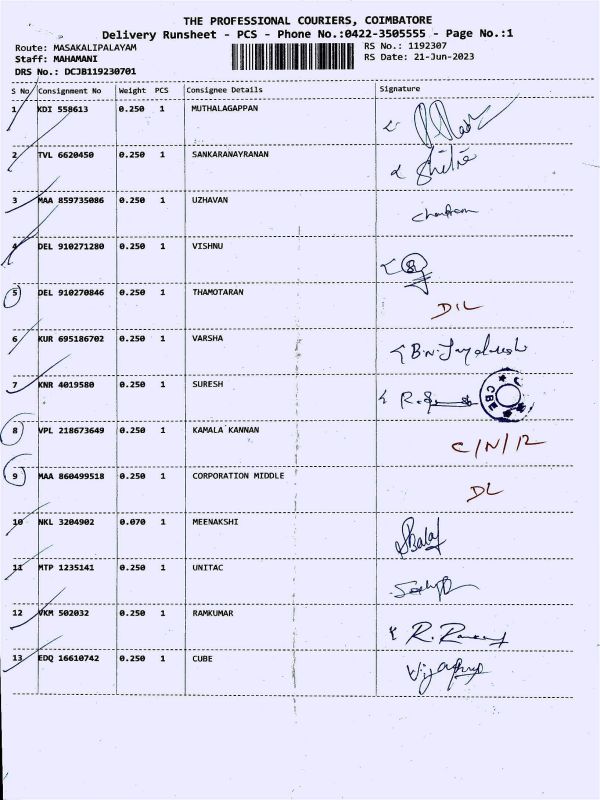 THE PROFESSIONAL COURIERS, COIMBATORE
Delivery Runsheet - PCS - Phone No.:0422-3505555 - Page No.:1
Route: MASAKALIPALAYAM RS No.: 1192307
Staff: MAHAMANI RS Date: 21-Jun-2023
DRS No.: DCJB119230701
S No Consignment No Weight PCS Consignee Details Signature
1 KDI 558613 0.250 1 MUTHALAGAPPAN
2 TVL 6620450 0.250 1 SANKARANAYRANAN
3 MAA 859735086 0.250 1 UZHAVAN
4 DEL 910271280 0.250 1 VISHNU
5 DEL 910270846 0.250 1 THAMOTARAN D/L
6 KUR 695186702 0.250 1 VARSHA
7 KNR 4019580 0.250 1 SURESH
8 VPL 218673649 0.250 1 KAMALA KANNAN C/N/R
9 MAA 860499518 0.250 1 CORPORATION MIDDLE DL
10 NKL 3204902 0.070 1 MEENAKSHI
11 MTP 1235141 0.250 1 UNITAC
12 VKM 502032 0.250 1 RAMKUMAR
13 EDQ 16610742 0.250 1 CUBE